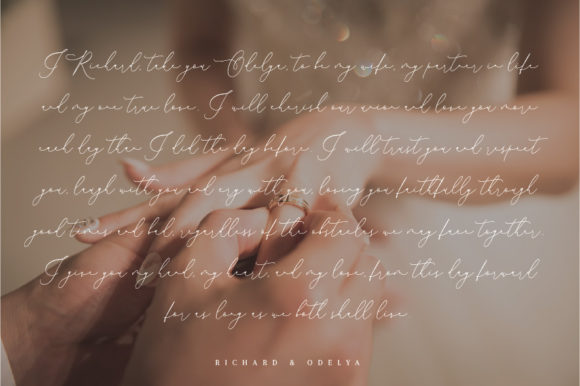 I Richard, take you Odelya, to be my wife, my partner in life
and my one true love. I will cherish our union and love you more
each day than I did the day before. I will trust you and respect
you, laugh with you and cry with you, loving you faithfully through
good times and bad, regardless of the obstacles we may face together.
I give you my hand, my heart, and my love, from this day forward
for as long as we both shall live.
RICHARD & ODELYA